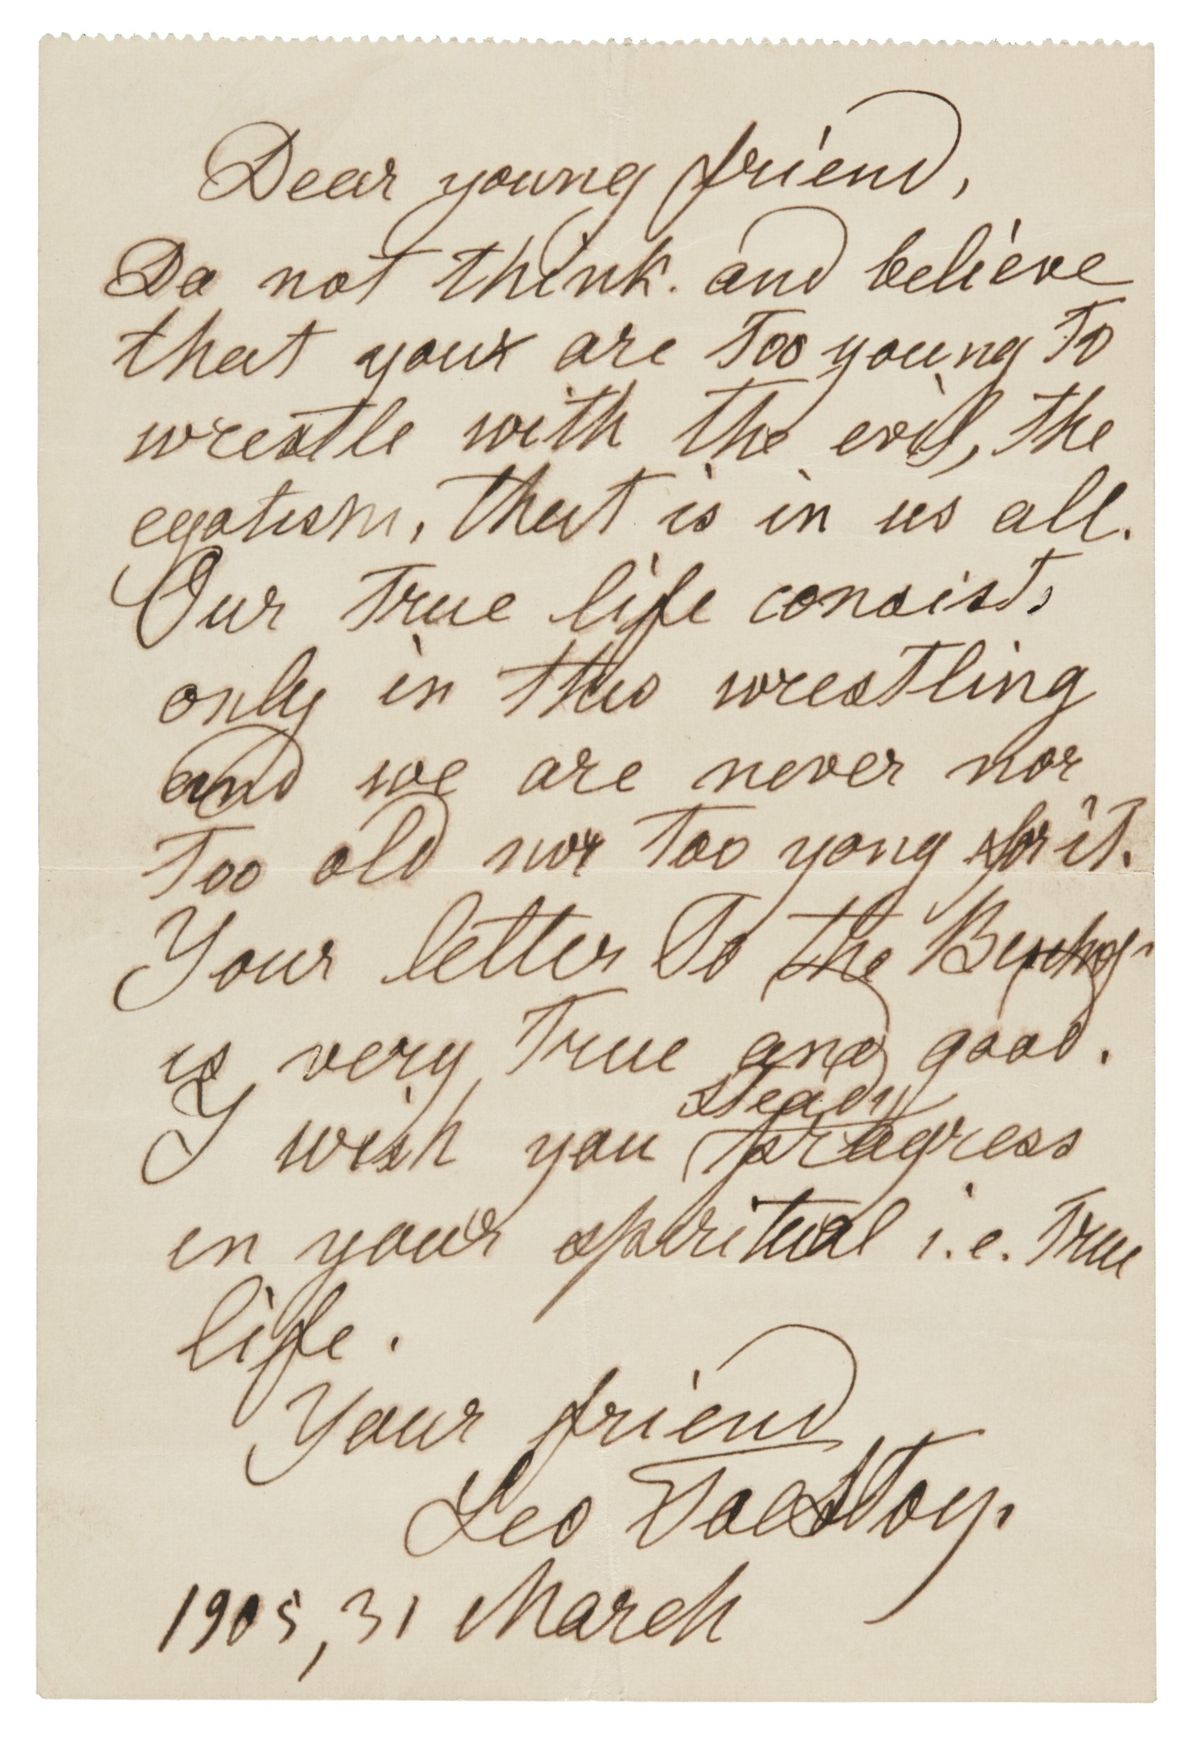 Dear young friend,
Do not think. and believe
that your are too young to
wrestle with the evil, the
egotism, that is in us all.
Our true life consists
only in this wrestling
and we are never nor
too old nor too yong for it.
Your letter to the
is very true and good.
steady
I wish you progress
in your spiritual i.e. true
life.
Your friend
Leo Tolstoy.
1905, 31 March